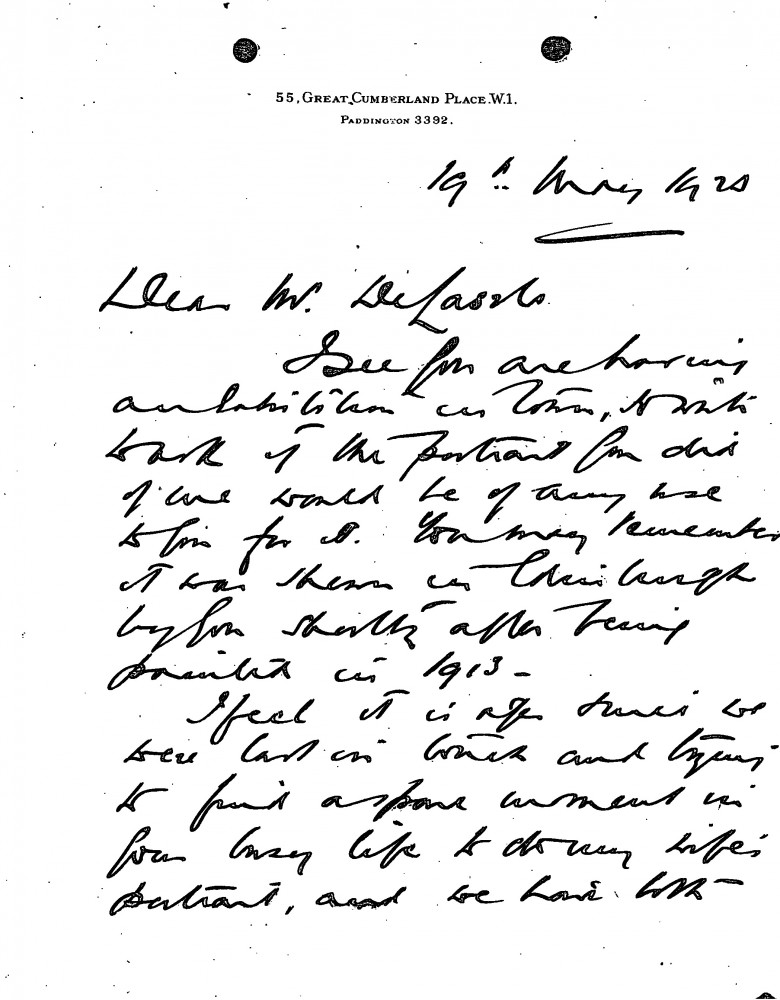 55, GREAT CUMBERLAND PLACE. W.1.
PADDINGTON 3392.
19th May 1920
Dear Mr. De Laszlo
I see you are having
an exhibition in town, & write
to ask if the portrait you did
of me would be of any use
to you for it. You may remember
it was shown in Edinburgh
by you shortly after being
painted in 1913 -
I feel it is ages since we
were last in touch and trying
to find a spare moment in
your busy life to do my wife's
portrait, and we have both